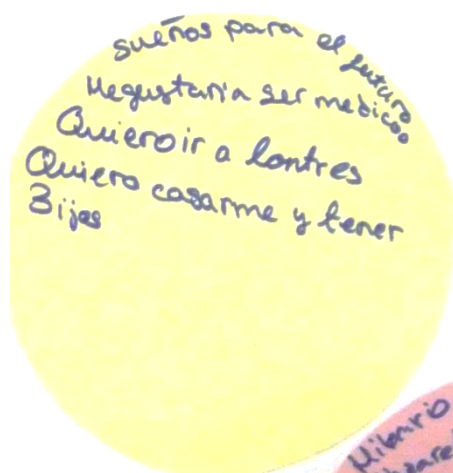 sueños para el futuro
Megustaria ser medicoo
Quieroir a lontres
Quiero casarme y tener
3ijos